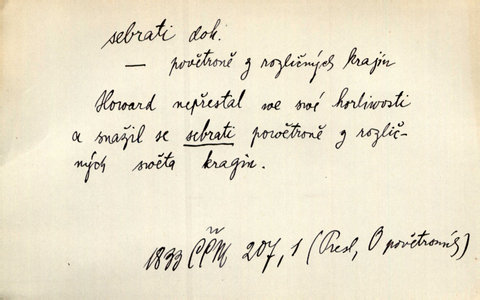 sebrati dok.
— povětroně z rozličných krajin
Howard nepřestal we swé horliwosti
a snažil se sebrati powětroně z rozlič-
ných swěta kragin.
1833 ČČM 207, 1 (Presl, O povětroních)